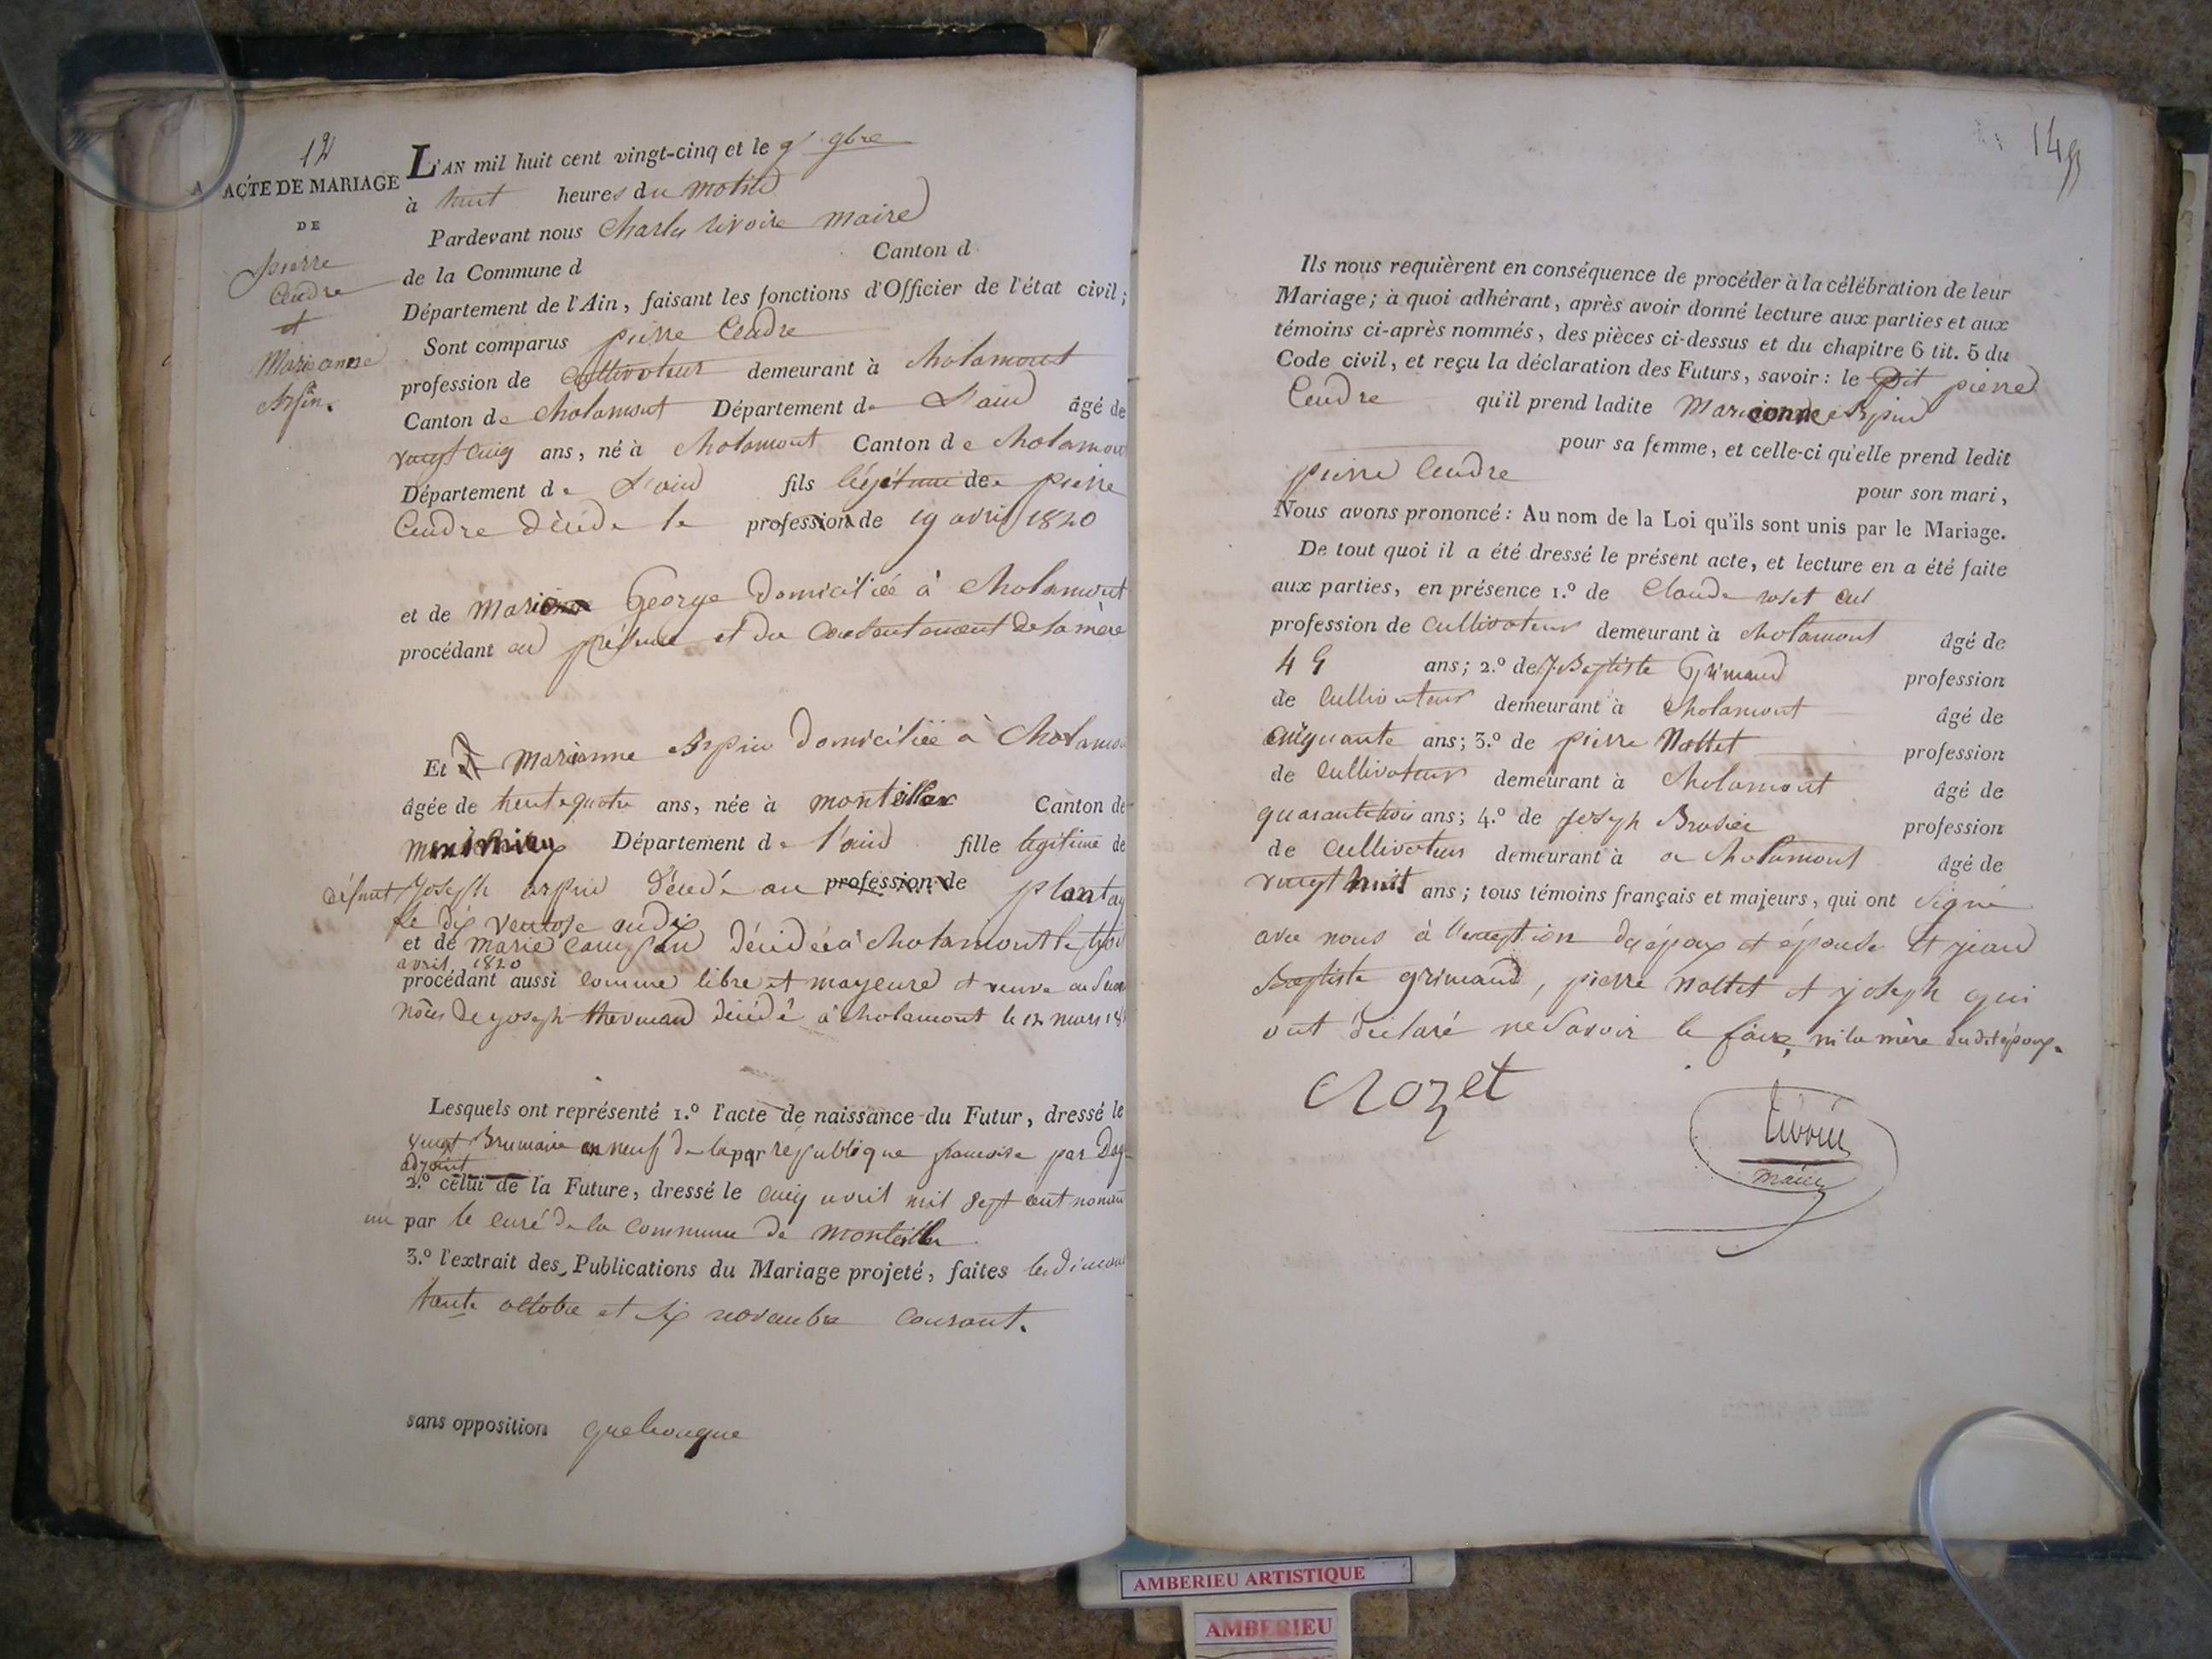 12
ACTE DE MARIAGE
DE
pierre
Cendre
et
Marianne
Arpin.
L'AN mil huit cent vingt-cinq et le 9bre
à huit heures du matin
Pardevant nous Charles rivoire maire
de la Commune d Canton d
Département de l'Ain, faisant les fonctions d'Officier de l'état civil;
Sont comparus pierre Cendre
profession de Cultivateur demeurant à cholamont
Canton de cholamont Département de L'ain âgé de
vingt cinq ans, né à cholamont Canton de cholamont
Département de L'ain fils légitime de pierre
Cendre décédé le profession de 19 avril 1820
et de George domiciliée à cholamont
procédant en présence et du Consentement de sa mère
Et Marianne Arpin domiciliée à Cholamo
âgée de trente quatre ans, née à montellier Canton de
Département de l'ain fille légitime de
défunt joseph arpin décédé au profession de plantay
le dix ventose an dix
et de marie décédée à cholamont le trois
avril 1820
procédant aussi comme libre et mayeure et veuve en Secon
nôces de joseph décédé à cholamont le 12 mars 18
Lesquels ont représenté 1.º l'acte de naissance du Futur, dressé le
vingt Brumaire an neuf de la par république francoise par
adjoint
2.º celui de la Future, dressé le cinq avril mil sept cent nonan
un par le curé de la commune de montellier
3.º l'extrait des Publications du Mariage projeté, faites les diman
trente octobre et six novembre courant.
sans opposition quelconque
149
Ils nous requièrent en conséquence de procéder à la célébration de leur
Mariage; à quoi adhérant, après avoir donné lecture aux parties et aux
témoins ci-après nommés, des pièces ci-dessus et du chapitre 6 tit. 5 du
Code civil, et reçu la déclaration des Futurs, savoir: le dit pierre
Cendre qu'il prend ladite Marianne Arpin
pour sa femme, et celle-ci qu'elle prend ledit
pierre Cendre pour son mari,
Nous avons prononcé: Au nom de la Loi qu'ils sont unis par le Mariage.
De tout quoi il a été dressé le présent acte, et lecture en a été faite
aux parties, en présence 1.º de Claude roset
profession de Cultivateur demeurant à cholamont âgé de
49 ans; 2.º de J. Baptiste Grimaud profession
de Cultivateur demeurant à cholamont âgé de
cinquante ans; 3.º de pierre Nollet profession
de Cultivateur demeurant à cholamont âgé de
quarante trois ans; 4.º de joseph Brosier profession
de Cultivateur demeurant à a cholamont âgé de
vingt huit ans; tous témoins français et majeurs, qui ont Signé
avec nous à l'exception des époux et épouse et jean
Baptiste grimaud, pierre Nollet et joseph qui
ont déclaré ne savoir le faire, ni la mère dudit époux.
Crozet
rivoire
maire
AMBERIEU ARTISTIQUE
AMBERIEU